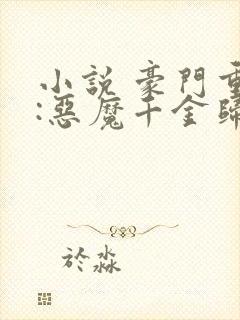 小說 豪門重
:惡魔千金歸
於淼